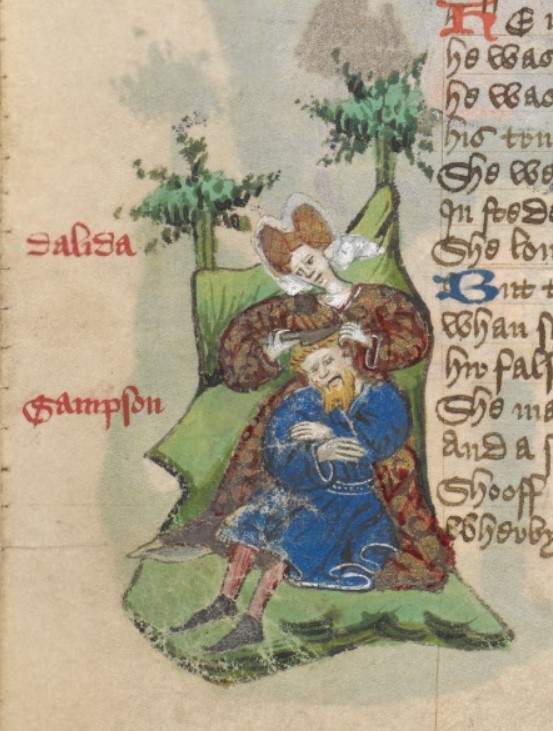 dalida
Sampson
he was
he was
his
She we
In sted
She
But
whan
hir fals
She ma
And a
Shooff
Wherby